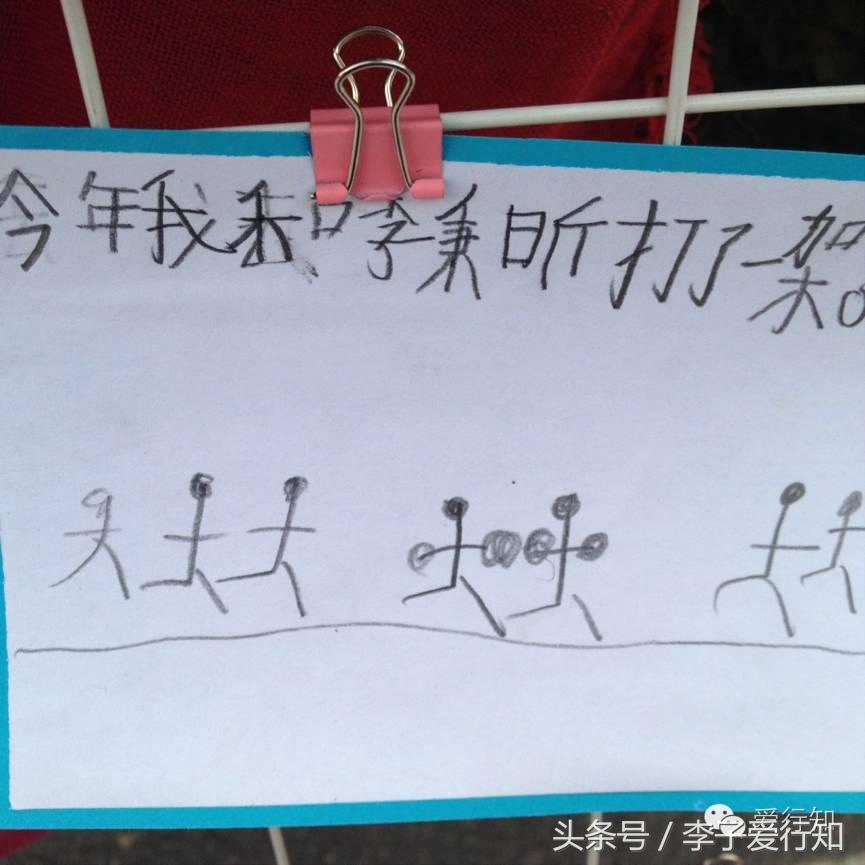 今年我和李秉昕打了一架。
爱行知
头条号 / 李子爱行知